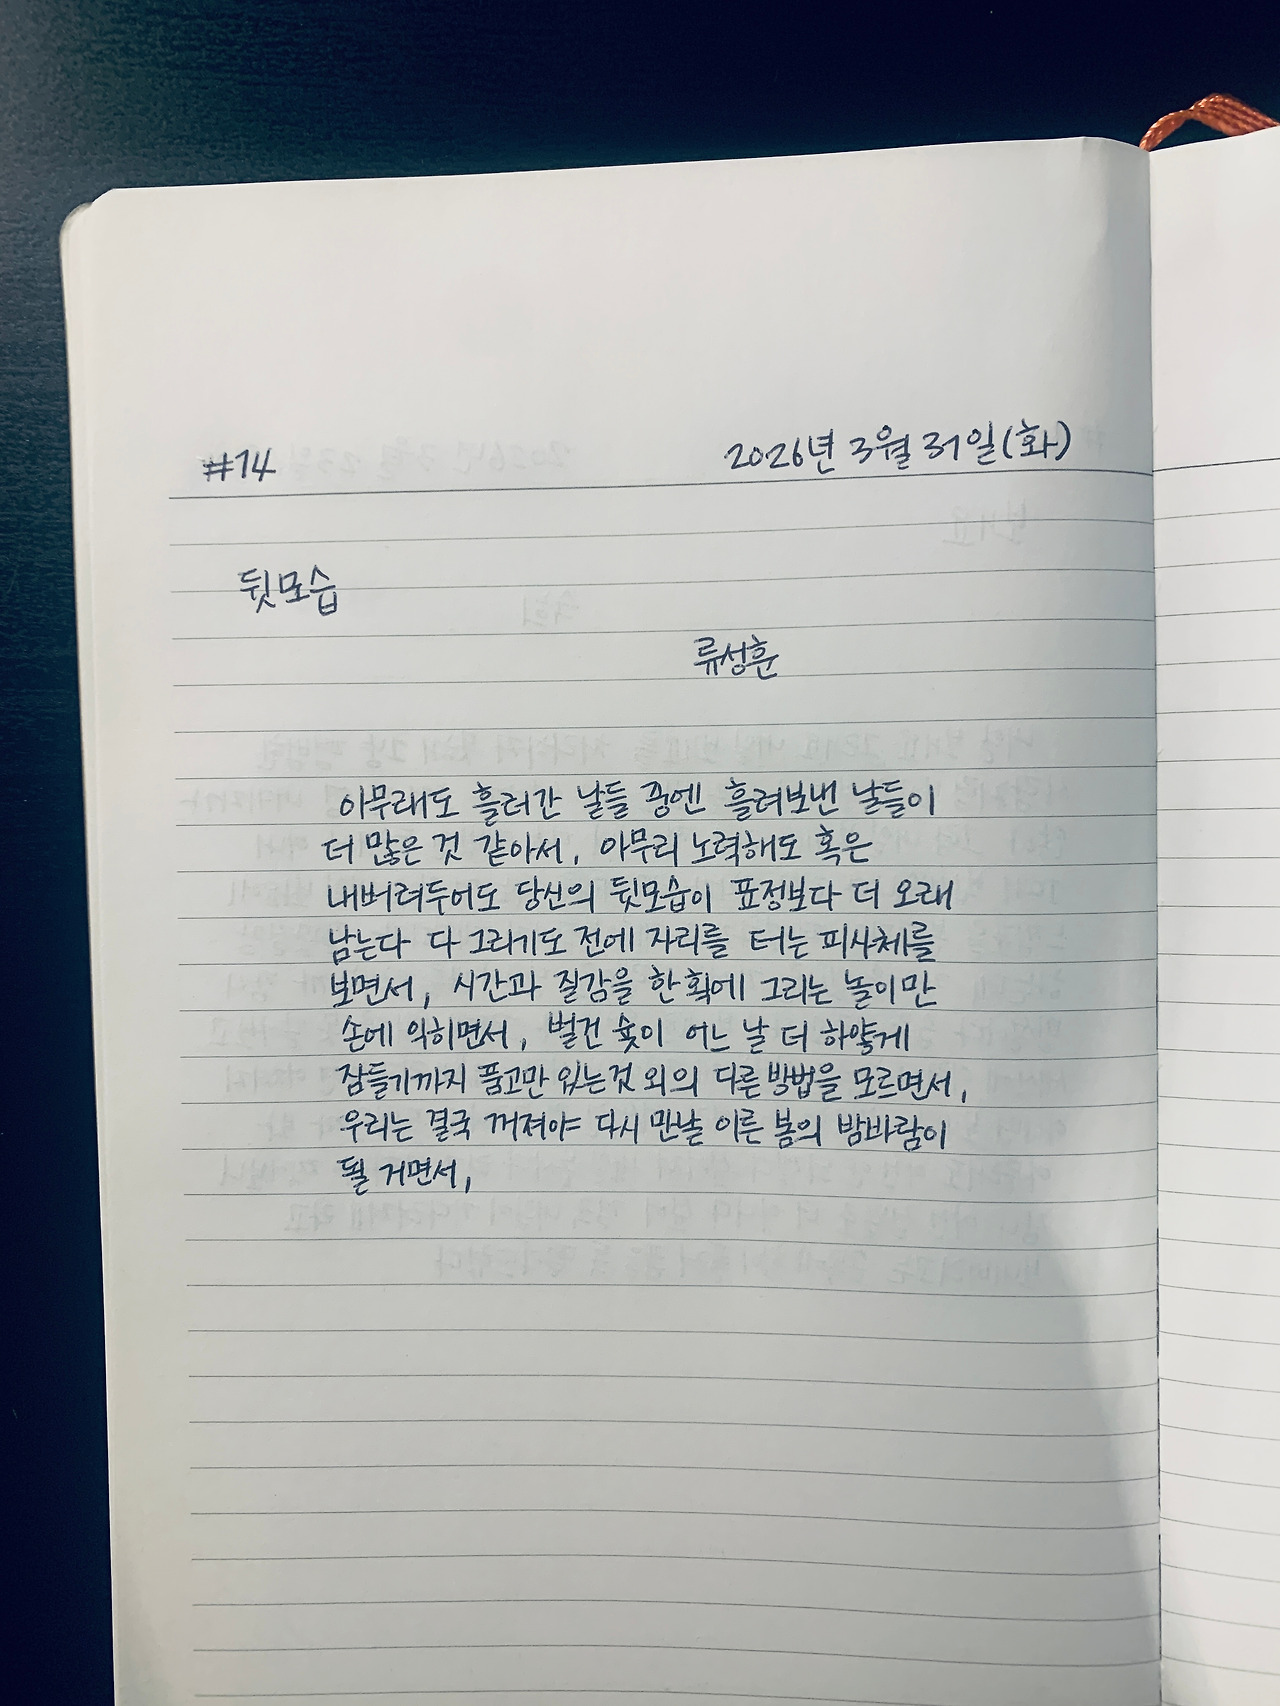 #14
2026년 3월 31일(화)
뒷모습
류성훈
아무래도 흘러간 날들 중엔 흘려보낸 날들이
더 많은 것 같아서, 아무리 노력해도 혹은
내버려두어도 당신의 뒷모습이 표정보다 더 오래
남는다 다 그리기도 전에 자리를 터는 피사체를
보면서, 시간과 질감을 한 획에 그리는 놀이만
손에 익히면서, 벌건 숯이 어느 날 더 하얗게
잠들기까지 품고만 있는것 외의 다른 방법을 모르면서,
우리는 결국 꺼져야 다시 만날 이른 봄의 밤바람이
될 거면서,